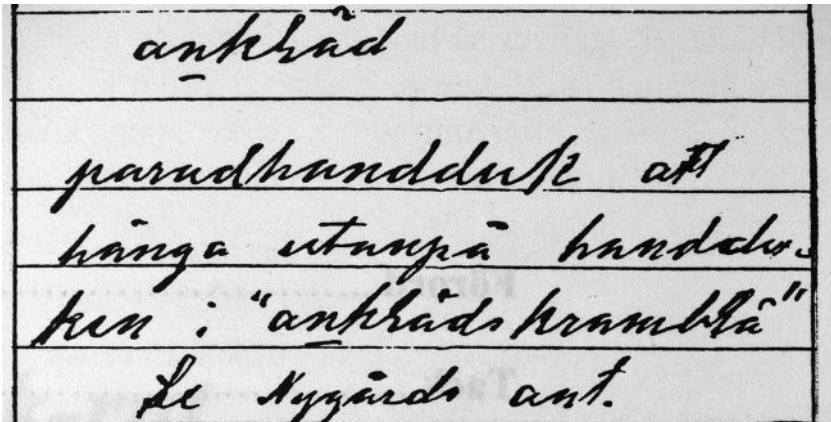 anklåd
paradhandduk att
hänga utanpå handdu-
ken i "anklåds kramblå"
Se Nygårds ant.